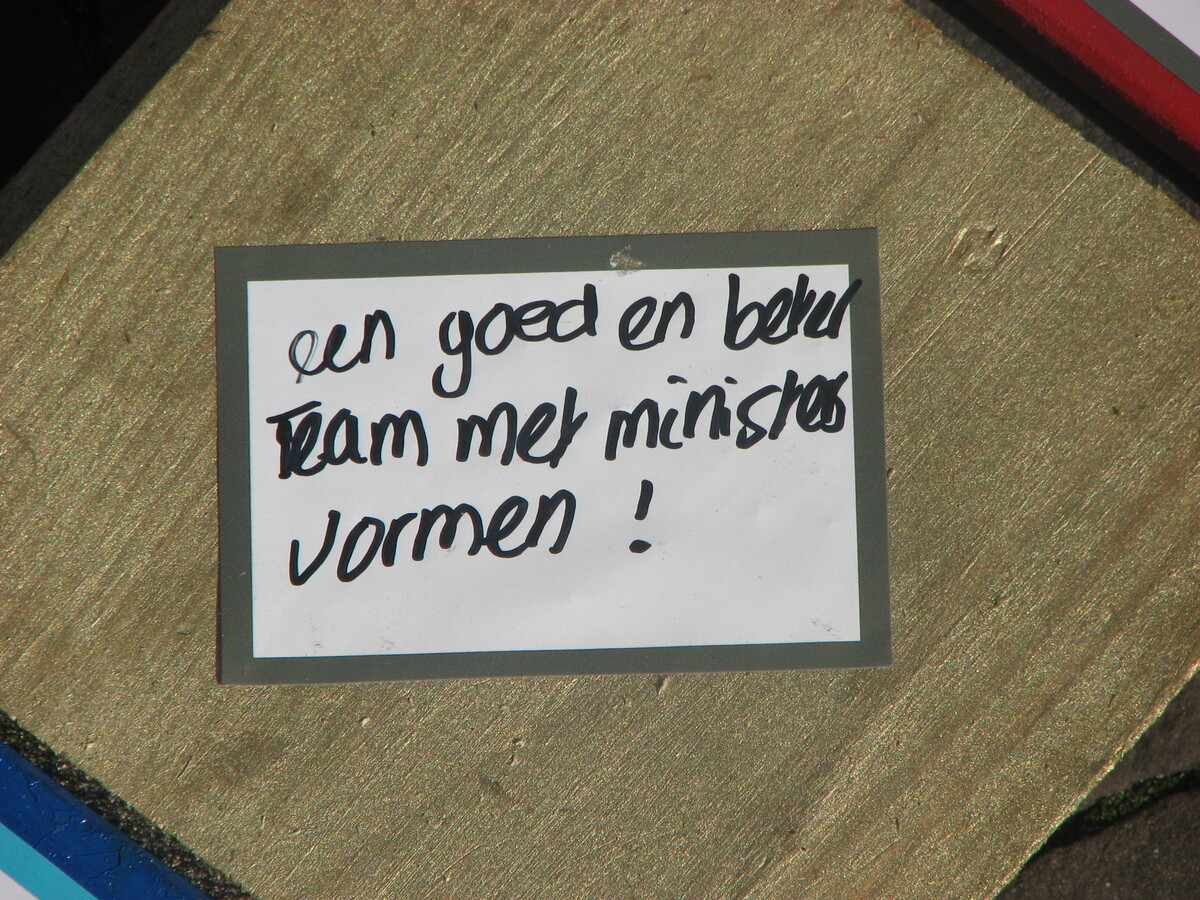 een goed en beter
Team met ministers
vormen !